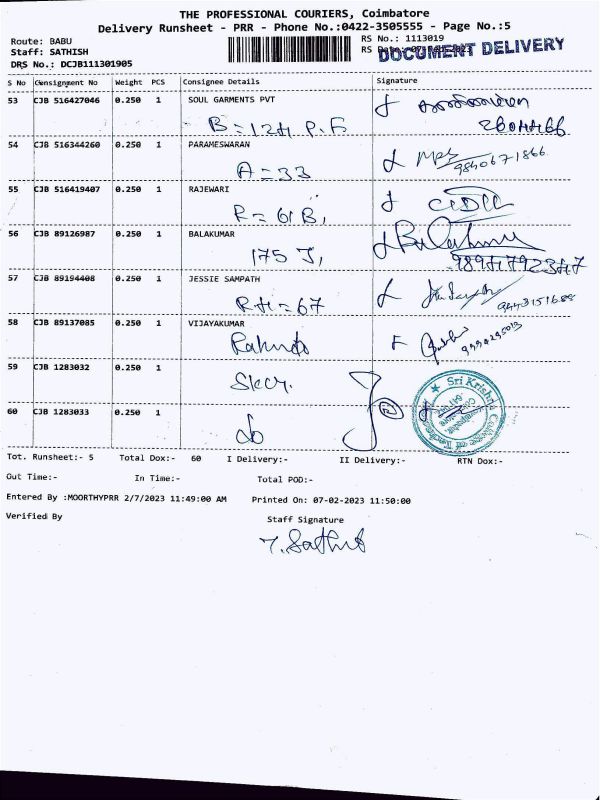 THE PROFESSIONAL COURIERS, Coimbatore
Delivery Runsheet - PRR - Phone No.:0422-3505555 - Page No.:5
Route: BABU
RS No.: 1113019
Staff: SATHISH
RS Date: 07-Feb-2023
DOCUMENT DELIVERY
DRS No.: DCJB111301905
S No Consignment No Weight PCS Consignee Details Signature
53 CJB 516427046 0.250 1 SOUL GARMENTS PVT
B=12H P.F
2604466
54 CJB 516344260 0.250 1 PARAMESWARAN
A=33
9840671866
55 CJB 516419407 0.250 1 RAJEWARI
R=61B,
56 CJB 89126987 0.250 1 BALAKUMAR
175 J,
57 CJB 89194408 0.250 1 JESSIE SAMPATH
RH=67
58 CJB 89137085 0.250 1 VIJAYAKUMAR
59 CJB 1283032 0.250 1
Skcy.
60 CJB 1283033 0.250 1
do
Sri Krishna College of Technology
Tot. Runsheet:- 5 Total Dox:- 60 I Delivery:- II Delivery:- RTN Dox:-
Out Time:- In Time:- Total POD:-
Entered By :MOORTHYPRR 2/7/2023 11:49:00 AM Printed On: 07-02-2023 11:50:00
Verified By Staff Signature